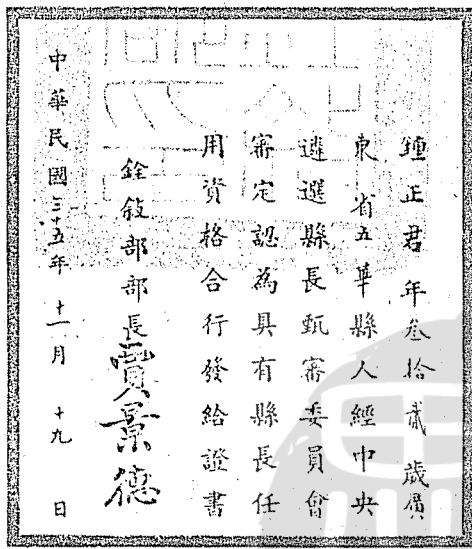 鍾正君年叁拾貳歲廣
東省五華縣人經中央
遴選縣長甄審委員會
審定認為具有縣長任
用資格合行發給證書
銓敍部部長賈景德
中華民國三十五年十一月十九日